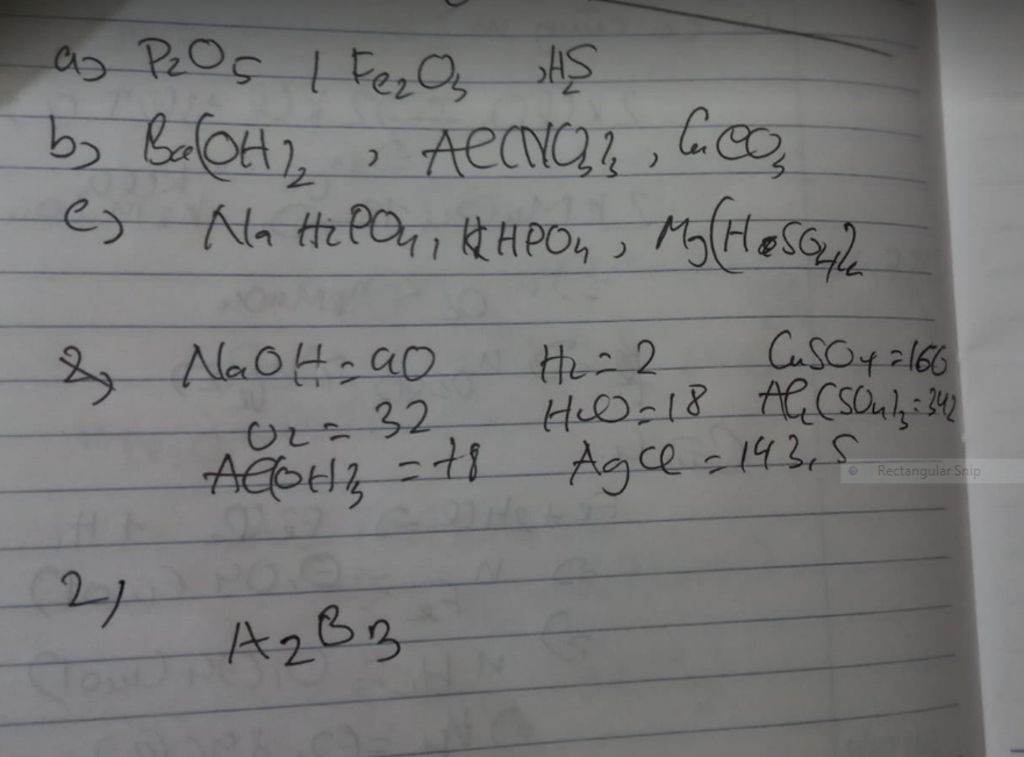 a) P2O5 , Fe2O3 , H2S
b) Ba(OH)2 , Al(NO3)3 , CuCO3
c) NaH2PO4, K2HPO4 , Mg(HSO4)2
2) NaOH = 40 H2 = 2 CuSO4 = 160
O2 = 32 H2O = 18 Al2(SO4)3 = 342
Al(OH)3 = 78 AgCl = 143,5
Rectangular Snip
2)
A2B3